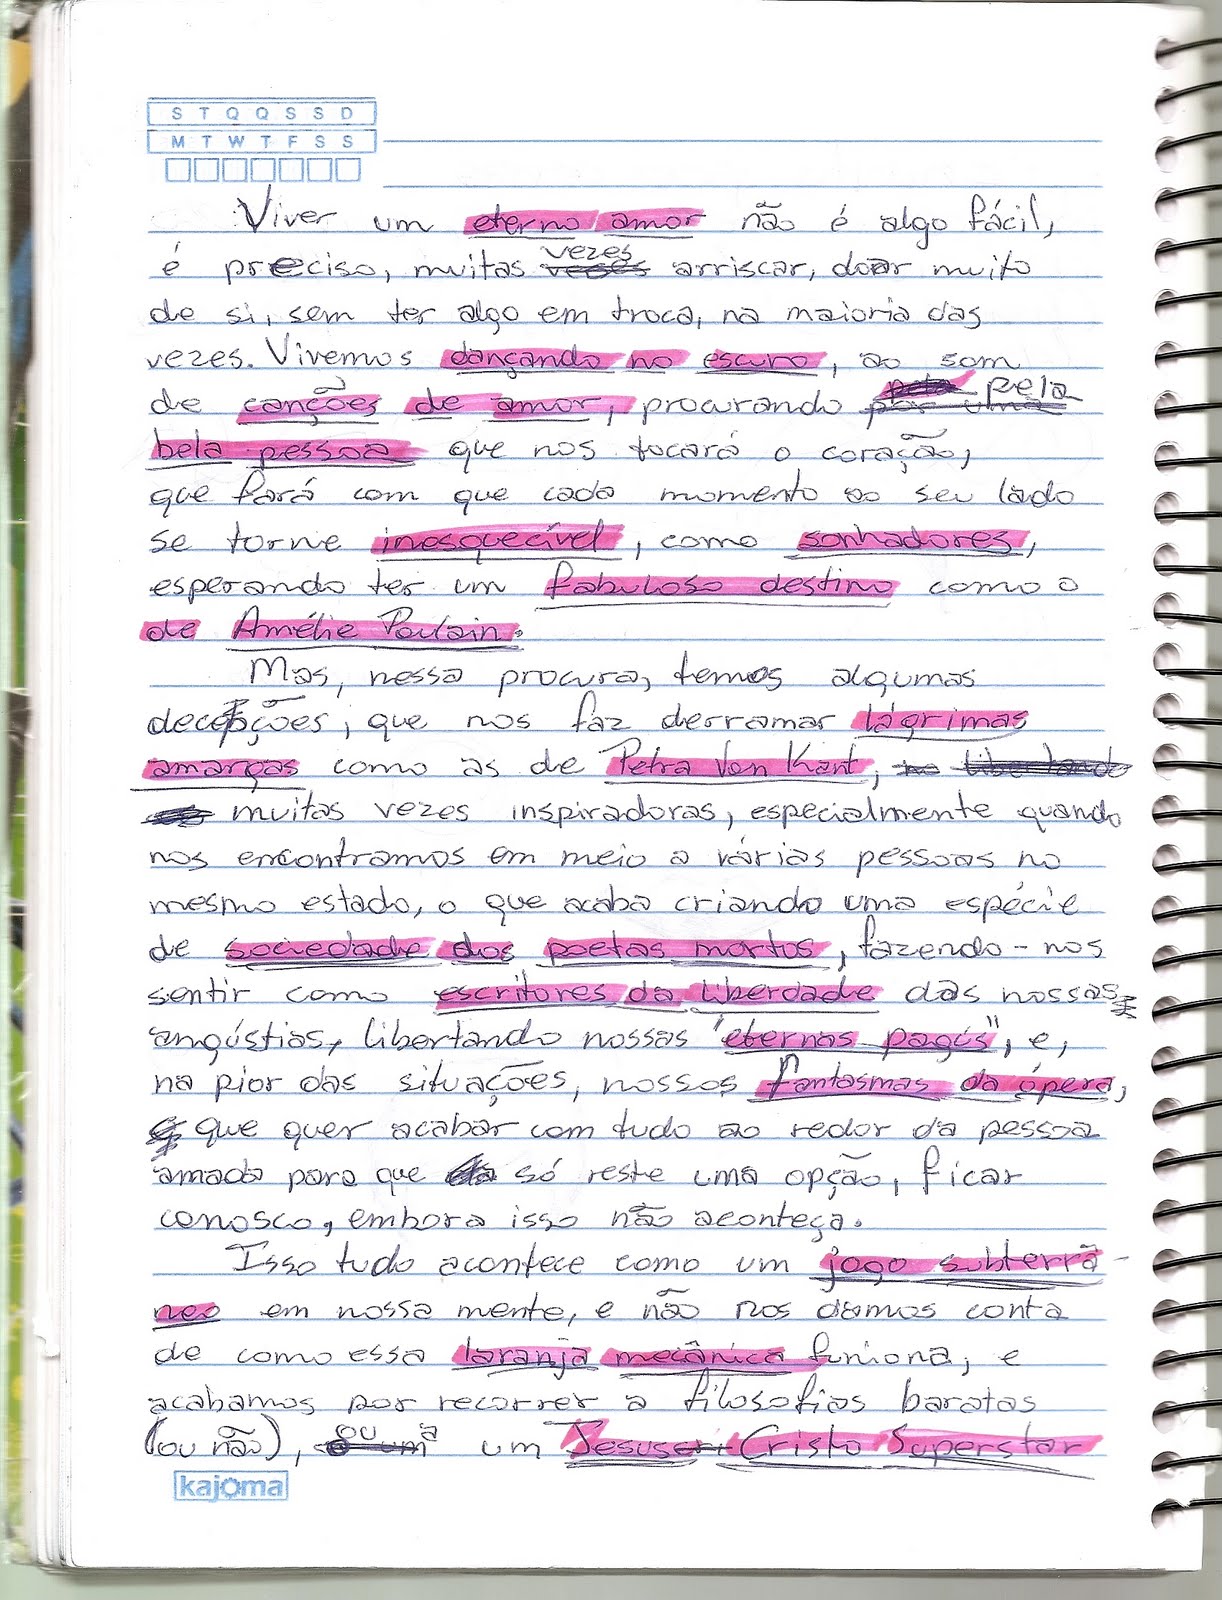 S T Q Q S S D
M T W T F S S
Viver um eterno amor não é algo fácil,
é preciso, muitas vezes arriscar, doar muito
de si, sem ter algo em troca, na maioria das
vezes. Vivemos dançando no escuro, ao som
de canções de amor, procurando pela
bela pessoa que nos tocará o coração,
que fará com que cada momento ao seu lado
se torne inesquecível, como sonhadores,
esperando ter um fabuloso destino como o
de Amélie Poulain.
Mas, nessa procura, temos algumas
decepções, que nos faz derramar lágrimas
amargas como as de Petra Von Kant,
muitas vezes inspiradoras, especialmente quando
nos encontramos em meio a várias pessoas no
mesmo estado, o que acaba criando uma espécie
de sociedade dos poetas mortos, fazendo-nos
sentir como escritores da liberdade das nossas
angústias, libertando nossas "eternas pagús", e,
na pior das situações, nossos fantasmas da ópera,
que quer acabar com tudo ao redor da pessoa
amada para que só reste uma opção, ficar
conosco, embora isso não aconteça.
Isso tudo acontece como um jogo subterrâ-
neo em nossa mente, e não nos damos conta
de como essa laranja mecânica funiona, e
acabamos por recorrer a filosofias baratas
(ou não), ou a um Jesus Cristo Superstar
kajoma